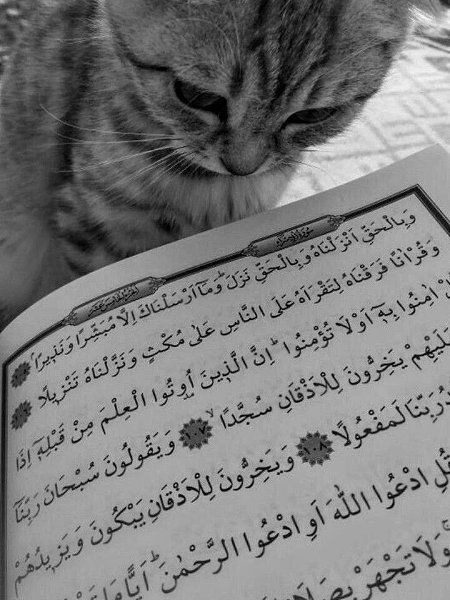 وَبِالْحَقِّ اَنْزَلْنَاهُ وَبِالْحَقِّ نَزَلَۜ وَمَٓا اَرْسَلْنَاكَ اِلَّا مُبَشِّرًا وَنَذِيرًاۢ ١٠٥
وَقُرْاٰنًا فَرَقْنَاهُ لِتَقْرَاَهُ عَلَى النَّاسِ عَلٰى مُكْثٍ وَنَزَّلْنَاهُ تَنْزِيلًا ١٠٦
اٰمِنُوا بِهٖٓ اَوْ لَا تُؤْمِنُواۜ اِنَّ الَّذِينَ اُو۫تُوا الْعِلْمَ مِنْ قَبْلِهٖٓ اِذَا
لَيْهِمْ يَخِرُّونَ لِلْاَذْقَانِ سُجَّدًاۙ ١٠٧ وَيَقُولُونَ سُبْحَانَ رَبِّنَٓا
دُ رَبِّنَا لَمَفْعُولًا ١٠٨ وَيَخِرُّونَ لِلْاَذْقَانِ يَبْكُونَ وَيَزِيدُهُمْ
قُلِ ادْعُوا اللّٰهَ اَوِ ادْعُوا الرَّحْمٰنَۜ اَيًّا مَا
وَلَا تَجْهَرْ